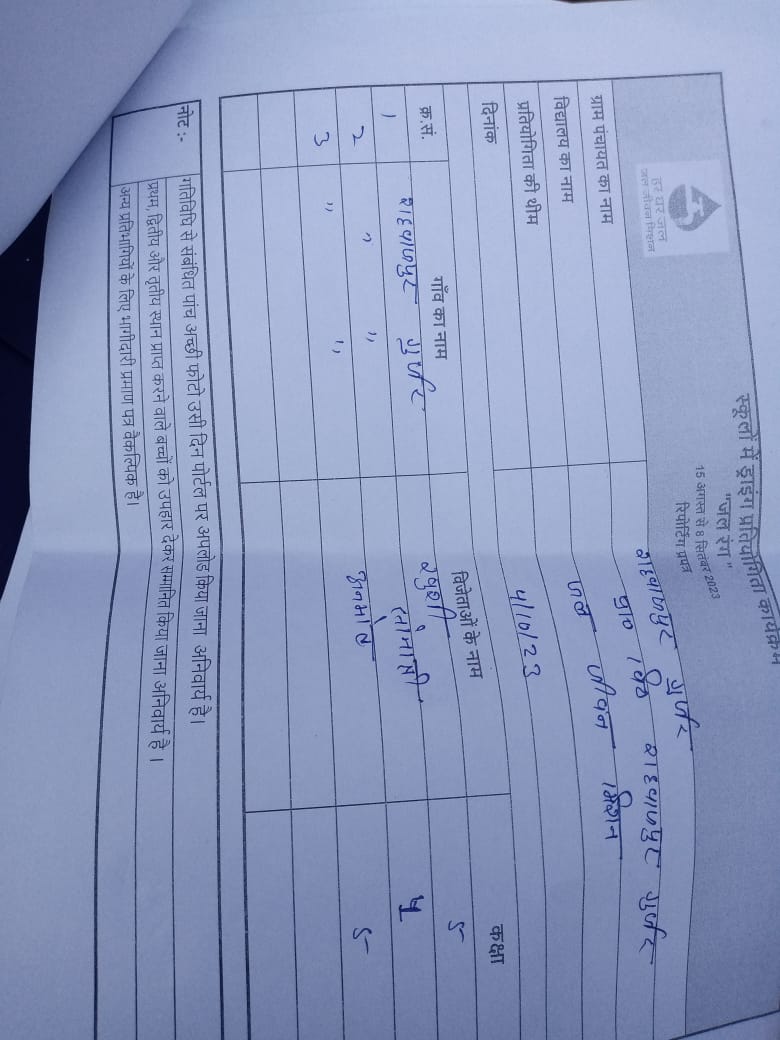 हर घर जल
जल जीवन मिशन
स्कूलों में ड्राइंग प्रतियोगिता कार्यक्रम
"जल रंग"
15 अगस्त से 8 सितंबर 2023
रिपोर्टिंग प्रपत्र
ग्राम पंचायत का नाम शहबाजपुर गुर्जर
विद्यालय का नाम प्रा० वि० शहबाजपुर गुर्जर
प्रतियोगिता की थीम जल जीवन मिशन
दिनांक 4/10/23
क्र.सं. गाँव का नाम विजेताओं के नाम कक्षा
1 शहबाजपुर गुर्जर खुशी 5
2 " " सोनाक्षी 4
3 " " 5
नोट :- गतिविधि से संबंधित पांच अच्छी फोटो उसी दिन पोर्टल पर अपलोड किया जाना अनिवार्य है।
प्रथम, द्वितीय और तृतीय स्थान प्राप्त करने वाले बच्चों को उपहार देकर सम्मानित किया जाना अनिवार्य है।
अन्य प्रतिभागियों के लिए भागीदारी प्रमाण पत्र वैकल्पिक है।